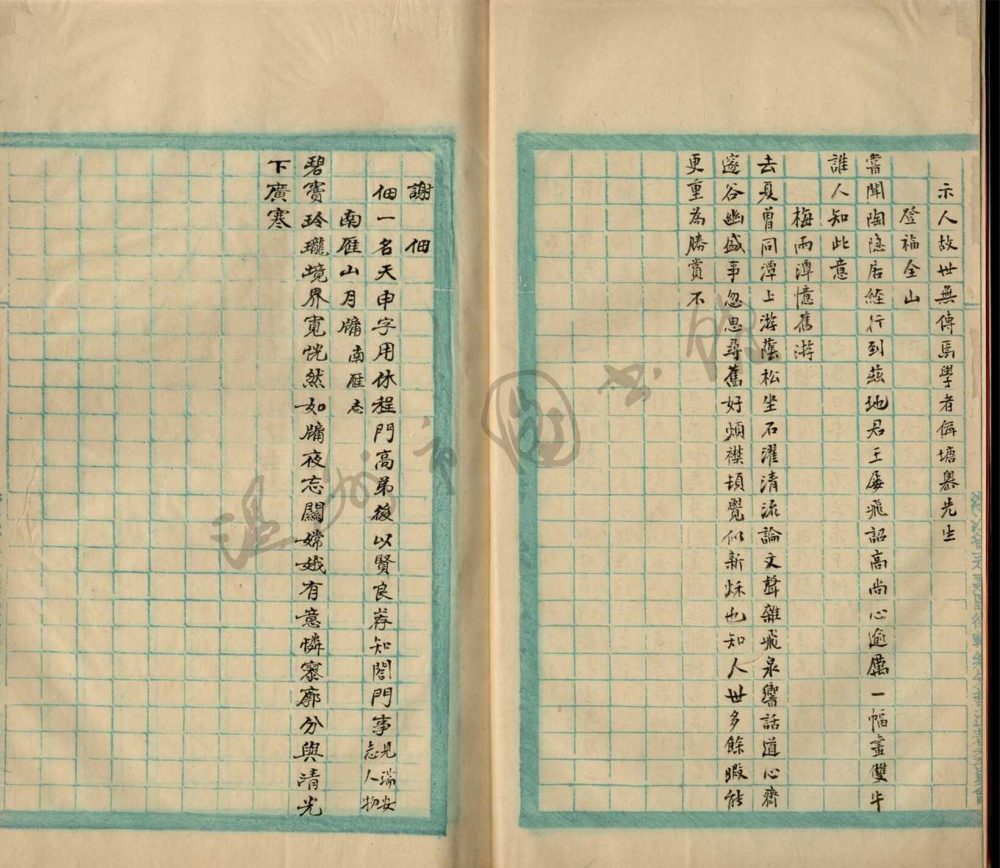 示人故世無傳焉學者偁塘嶴先生
登福全山
嘗聞陶隱居經行到茲地君王屡飛詔高尚心逾厲一幅畫雙牛
誰人知此意
梅雨潭憶舊游
去夏曾同潭上游蔭松坐石濯清流論文聲雜飛泉響話道心齊
邃谷幽盛事忽思尋舊好煩襟頓覺似新秌也知人世多餘暇能
更重為勝賞不
謝佃
佃一名天申字用休程門高弟後以賢良荐知閤門事見瑞安
志人物
南雁山月牗南雁志
碧賨玲瓏境界寬恍然如牗夜忘關嫦娥有意憐寥廓分與清光
下廣寒
溫州市圖書館